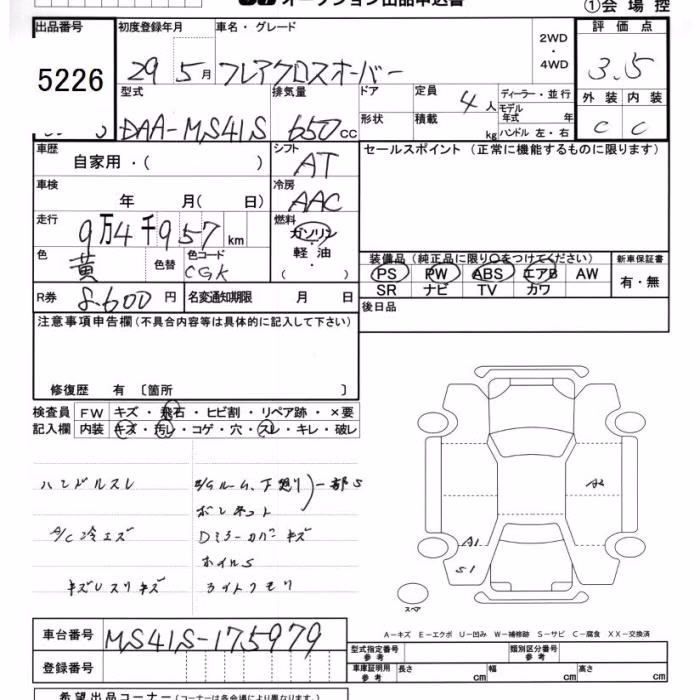 オークション出品申込書
①会場控
出品番号
5226
初度登録年月
29 5月
車名・グレード
フレアクロスオーバー
2WD
・
4WD
評価点
3.5
外装 内装
C C
型式
DAA-MS41S
排気量
650cc
ドア
形状
定員
4人
積載
kg
ディーラー・並行
モデル年式 年
ハンドル 左・右
車歴
自家用・( )
シフト
AT
セールスポイント(正常に機能するものに限ります)
車検
年 月( 日)
冷房
AAC
走行
9万4千957km
燃料
ガソリン
軽油
( ・ )
色
黄
色替
色コード
CGK
装備品(純正品に限り○をつけてください)
PS PW ABS エアB AW
SR ナビ TV カワ
新車保証書
有・無
R券
8,600円
名変通知期限 月 日
後日品
注意事項申告欄(不具合内容等は具体的に記入して下さい)
修復歴 有 〔箇所 〕
検査員
記入欄
FW キズ・飛石・ヒビ割・リペア跡・×要
内装 キズ・汚レ・コゲ・穴・スレ・キレ・破レ
ハンドルスレ
E/Gルーム、下廻り 一部S
ボンネット
A/C冷エズ
Dミラーカバーキズ
ホイルS
キズUスリキズ
ライトクモリ
A2
A1
S1
スペア
A-キズ E-エクボ U-凹み W-補修跡 S-サビ C-腐食 XX-交換済
車台番号
MS41S-175979
登録番号
型式指定番号
参考
類別区分番号
参考
車庫証明用
参考
長さ cm
幅 cm
高さ cm
希望出品コーナー(コーナーは各会場により異なります。)